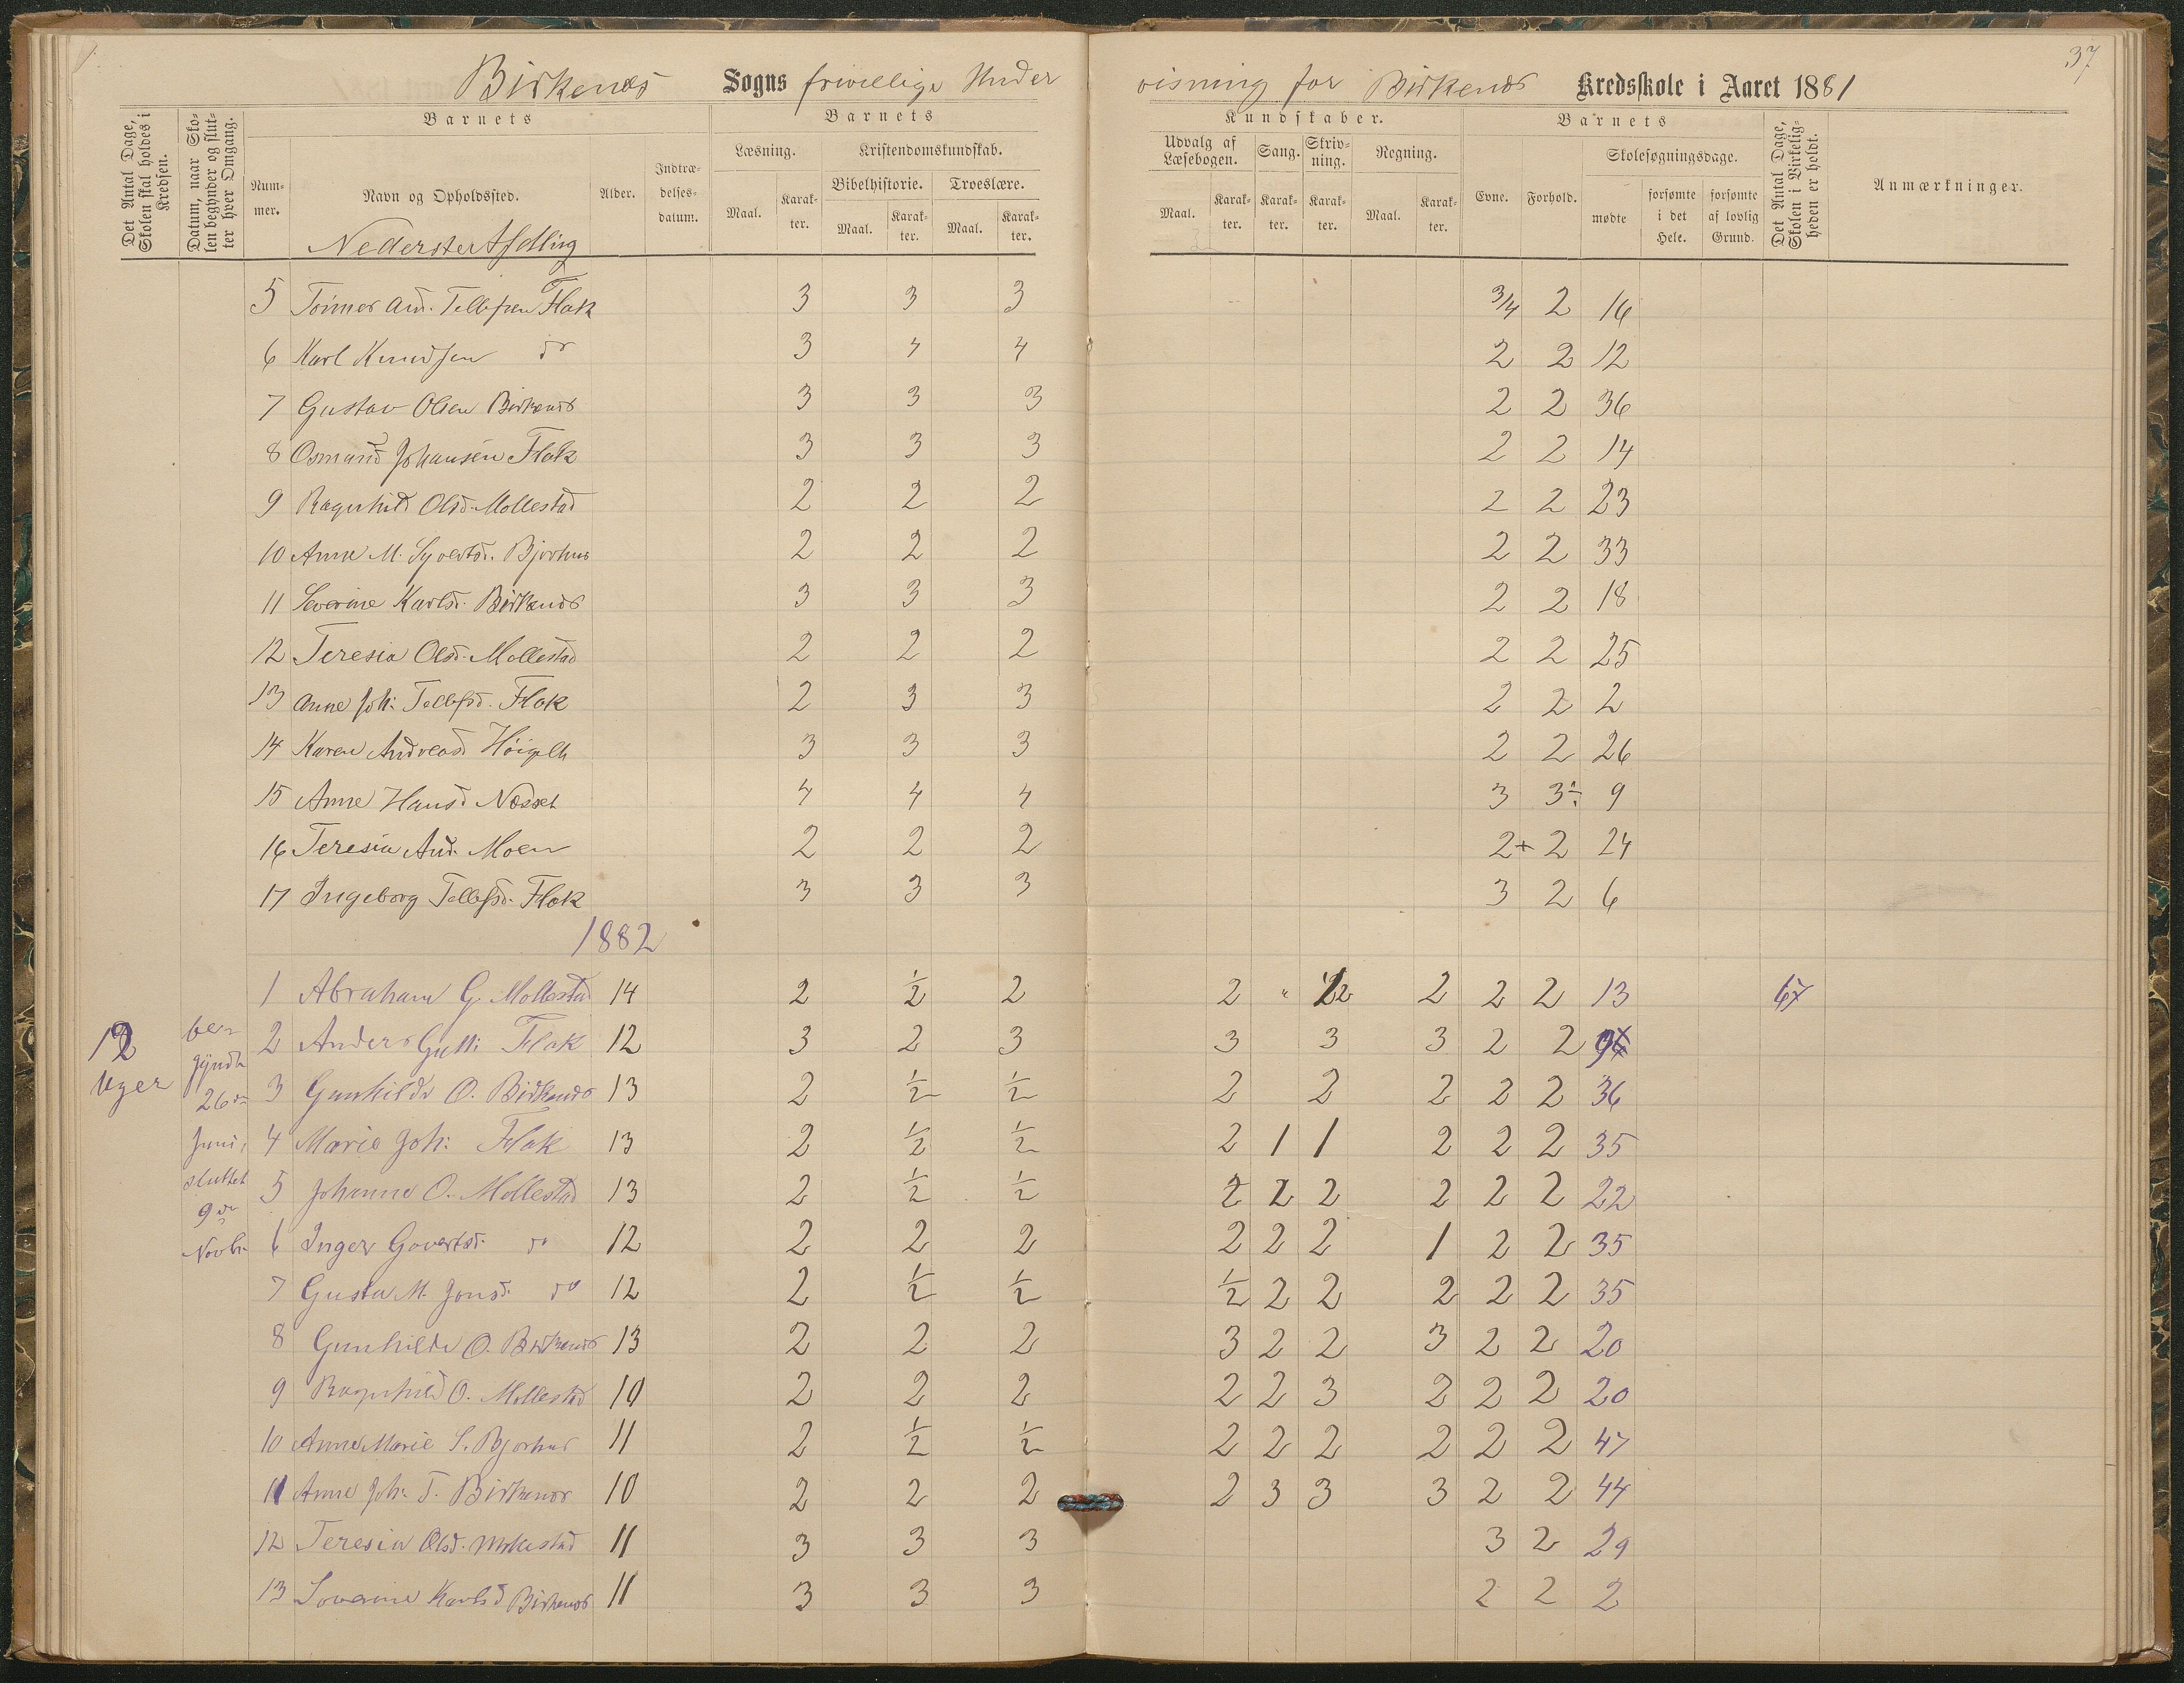 37
Birkenes Sogns frivillige Under visning for Birkenes Kredsskole i Aaret 1881
Det Antal Dage, Skolen skal holdes i Kredsen.
Datum, naar Skolen begynder og slutter hver Omgang.
Barnets
Nummer.
Navn og Opholdssted.
Alder.
Indtrædelsesdatum.
Barnets
Læsning.
Maal.
Karakter.
Kristendomskundskab.
Bibelhistorie.
Maal.
Karakter.
Troeslære.
Maal.
Karakter.
Kundskaber.
Udvalg af Læsebogen.
Maal.
Karakter.
Sang.
Karakter.
Skrivning.
Karakter.
Regning.
Maal.
Karakter.
Barnets
Evne.
Forhold.
Skolesøgningsdage.
mødte
forsømte i det Hele.
forsømte af lovlig Grund.
Det Antal Dage, Skolen i Virkeligheden er holdt.
Anmærkninger.
Nederste Afdling
5 Tønnes And. Tellefsen Flak 3 3 3 3/4 2 16
6 Karl Knudsen do 3 4 4 2 2 12
7 Gustav Olsen Birkenes 3 3 3 2 2 36
8 Osmund Johansen Flak 3 3 3 2 2 14
9 Ragnhild Olsd. Mollestad 2 2 2 2 2 23
10 Anne M. Syvertsd. Bjorhus 2 2 2 2 2 33
11 Severine Karlsd. Birkenes 3 3 3 2 2 18
12 Teresia Olsd. Mollestad 2 2 2 2 2 25
13 Anne Joh: Tellefsd. Flak 2 3 3 2 2 2
14 Karen Andreasd 3 3 3 2 2 26
15 Anne Hansd Nesset 4 4 4 3 3÷ 9
16 Teresia And. Moen 2 2 2 2+ 2 24
17 Ingeborg Tellefsd. Flak 3 3 3 3 2 6
1882
12 Uger
begyndte 26de Juni, sluttet 9de Novbr.
1 Abraham G. Mollestad 14 2 1/2 2 2 " 2 2 2 2 13 67
2 Anders Flak 12 3 2 3 3 3 3 2 2
3 Gunhilde O. Birkenes 13 2 1/2 1/2 2 2 2 2 2 36
4 Marie Joh: Flak 13 2 1/2 1/2 2 1 1 2 2 2 35
5 Johanne O. Mollestad 13 2 1/2 1/2 2 2 2 2 2 2 22
6 Inger Govertsd. do 12 2 2 2 2 2 2 1 2 2 35
7 Gusta M. Jonsd. do 12 2 1/2 1/2 1/2 2 2 2 2 2 35
8 Gunhilde O. Birkenes 13 2 2 2 3 2 2 3 2 2 20
9 Ragnhild O. Mollestad 10 2 2 2 2 2 3 2 2 2 20
10 Anne Marie S. Bjorhus 11 2 1/2 1/2 2 2 2 2 2 2 47
11 Anne Joh: T. Birkenes 10 2 2 2 2 3 3 3 2 2 44
12 Teresia Olsd. Mollestad 11 3 3 3 3 2 29
13 Severine Karlsd Birkenes 11 3 3 3 2 2 2